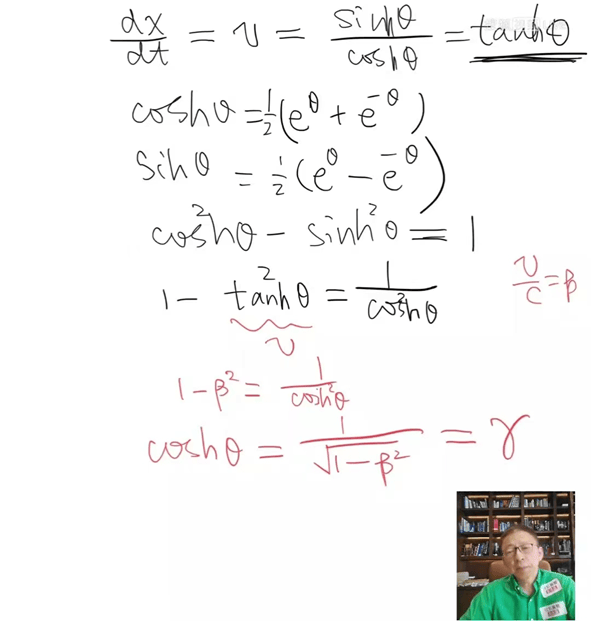 dx/dt = v = sinhθ/coshθ = tanhθ
coshθ = ½(e^θ + e^-θ)
sihθ = ½(e^θ - e^-θ)
cos²hθ - sinh²θ = 1
1 - tanh²θ = 1/cos²hθ
v
v/c = β
1-β² = 1/cosh²θ
coshθ = 1/√(1-β²) = γ